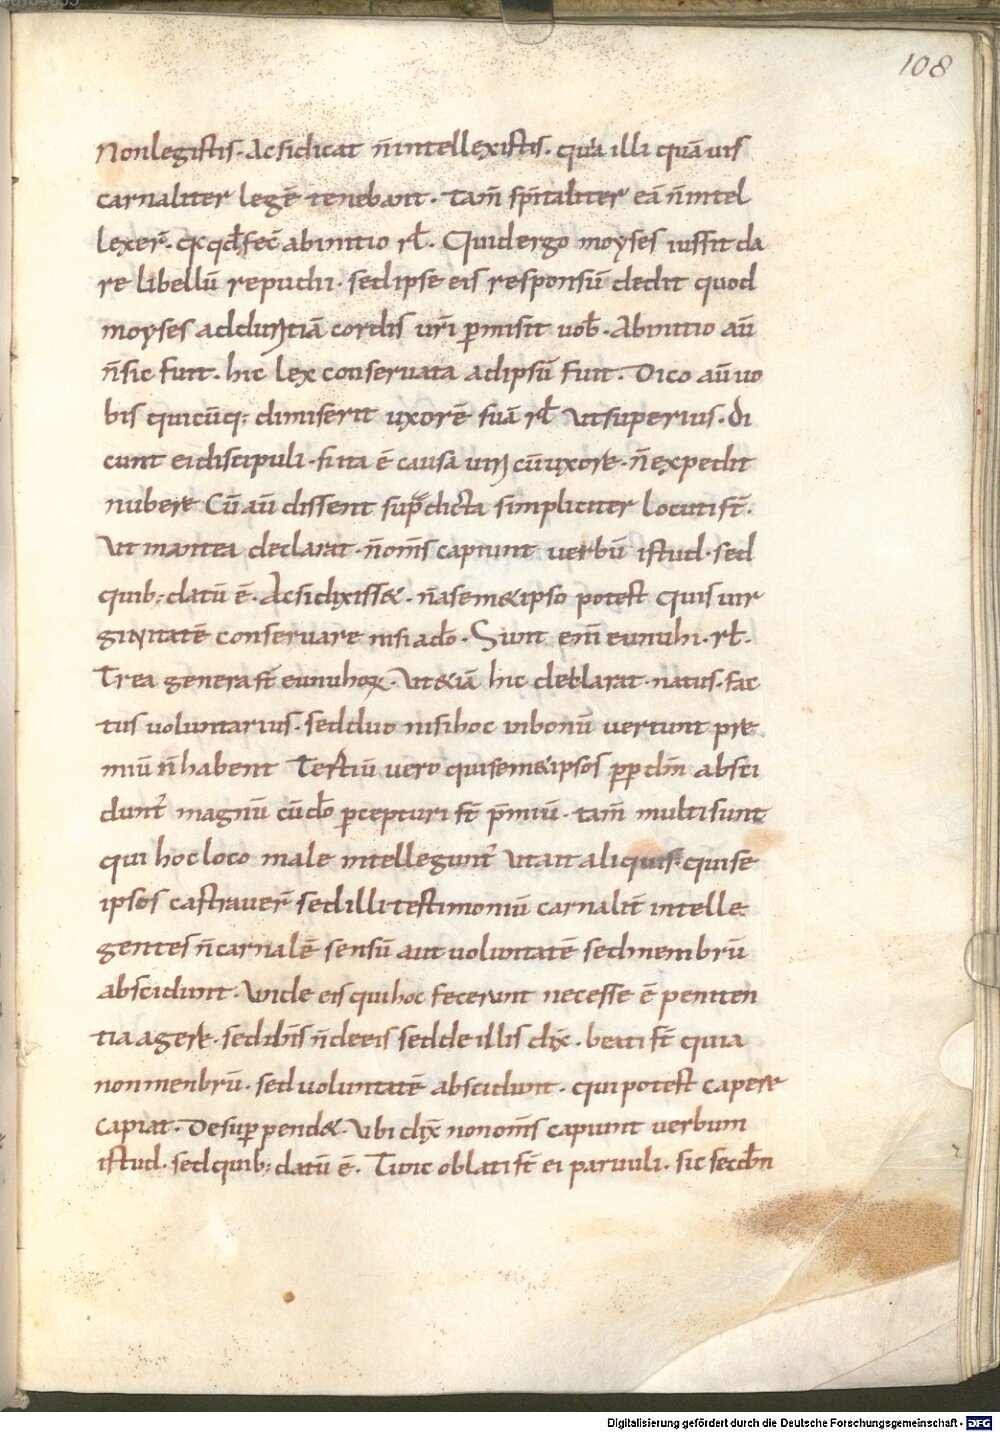 108
Nonlegistis. Acsidicat n̄intellexistis. quia illi quāuis
carnaliter legē tenebant. tam̄ sp̄italiter eā n̄intel
lexer̄. qx qđ fec̄ abinitio rł. Quidergo moyses iussit da
re libellū repudii. sedipse eis responsū dedit quod
moyses adduritiā cordis ur̄i ꝑmisit uob̄. Abinitio aū
n̄sic fuit. hic lex conseruata adipsū fuit. Dico aū uo
bis quicūq; dimiserit uxorē suā rł ut superius. di
cunt eidiscipuli. si ita ē causa uiri cū uxore. n̄ expedit
nubere Cū aū dissent sup̄dicta simpliciter locuti st̄.
Ut inantea declarat. n̄ om̄s capiunt uerbū istud. sed
quib; datū ē. Acsidixiss&. n̄asem&ipso potest quis uir
ginitatē conseruare nisi ado. Sunt eni̅ eunuhi. rł.
Trea genera st̄ eunuhoꝝ. Ut&iā hic deblarat. natus. fac
tus uoluntarius. sedduo nisihoc inbonū uertunt pre
miū n̄ habent Tertiū uero quisem&ipsos ꝓp dn̄m absci
dunt̄ magnū cūdo ꝑcepturi st̄ p̄miū. tam̄ multi sunt
qui hoc loco male intellegunt̄ ut ait aliquis. quise
ipsos castrauer̄ sedilli testimoniū carnalit̄ intelle
gentes n̄ carnalē sensū aut uoluntatē sedmembrū
abscidunt. Unde eis quihoc fecerunt necesse ē peniten
tia agere. sed dn̄s n̄ deeis sedde illis dix̄. beati st̄ quia
nonmenbrū. sed uoluntatē abscidunt. qui potest capere
capiat. Desuꝑ pend&. Ubi dix̄ nonom̄s capiunt uerbum
istud. sedquib; datū ē. Tunc oblati st̄ ei paruuli. sic secđm
Digitalisierung gefördert durch die Deutsche Forschungsgemeinschaft - DFG